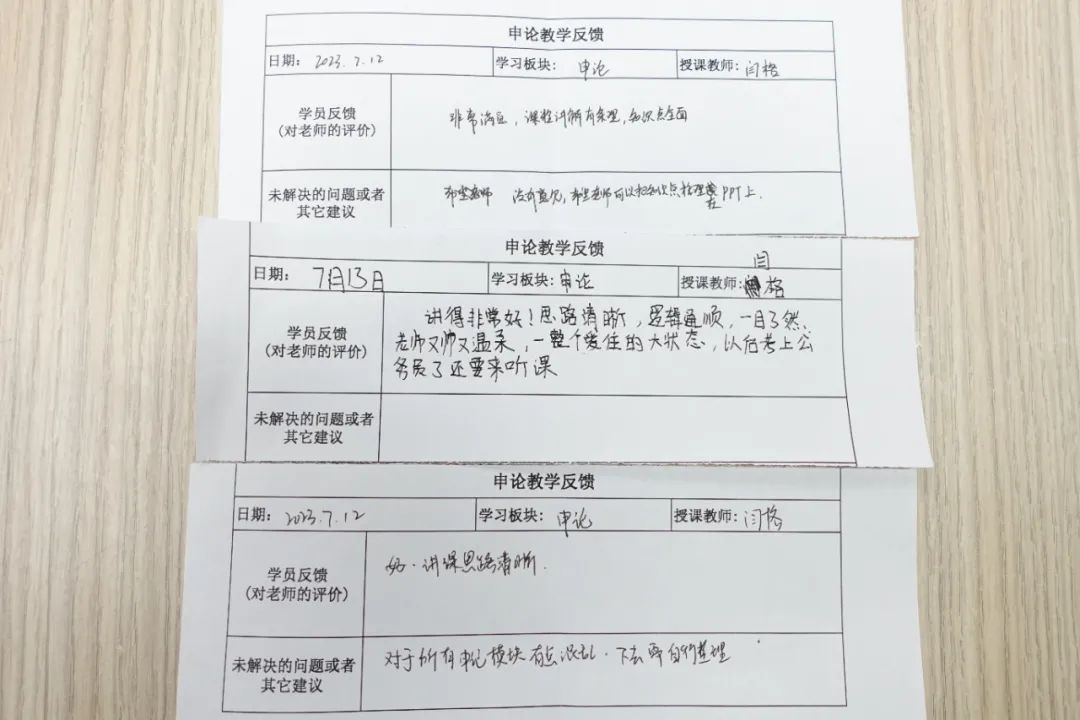 申论教学反馈
日期: 2023.7.12 学习板块: 申论 授课教师: 闫格
学员反馈
(对老师的评价)
非常满意,课程讲解有条理,知识点全面
未解决的问题或者
其它建议
希望老师 没有意见,希望老师可以把知识点整理在PPT上.
申论教学反馈
日期: 7月13日 学习板块: 申论 授课教师: 闫格
学员反馈
(对老师的评价)
讲得非常好!思路清晰,逻辑通顺,一目了然.
老师又帅又温柔,一整个爱住的大状态,以后考上公
务员了还要来听课
未解决的问题或者
其它建议
申论教学反馈
日期: 2023.7.12 学习板块: 申论 授课教师: 闫格
学员反馈
(对老师的评价)
好.讲课思路清晰.
未解决的问题或者
其它建议
对于所有申论模块有点混乱.下去要自行整理